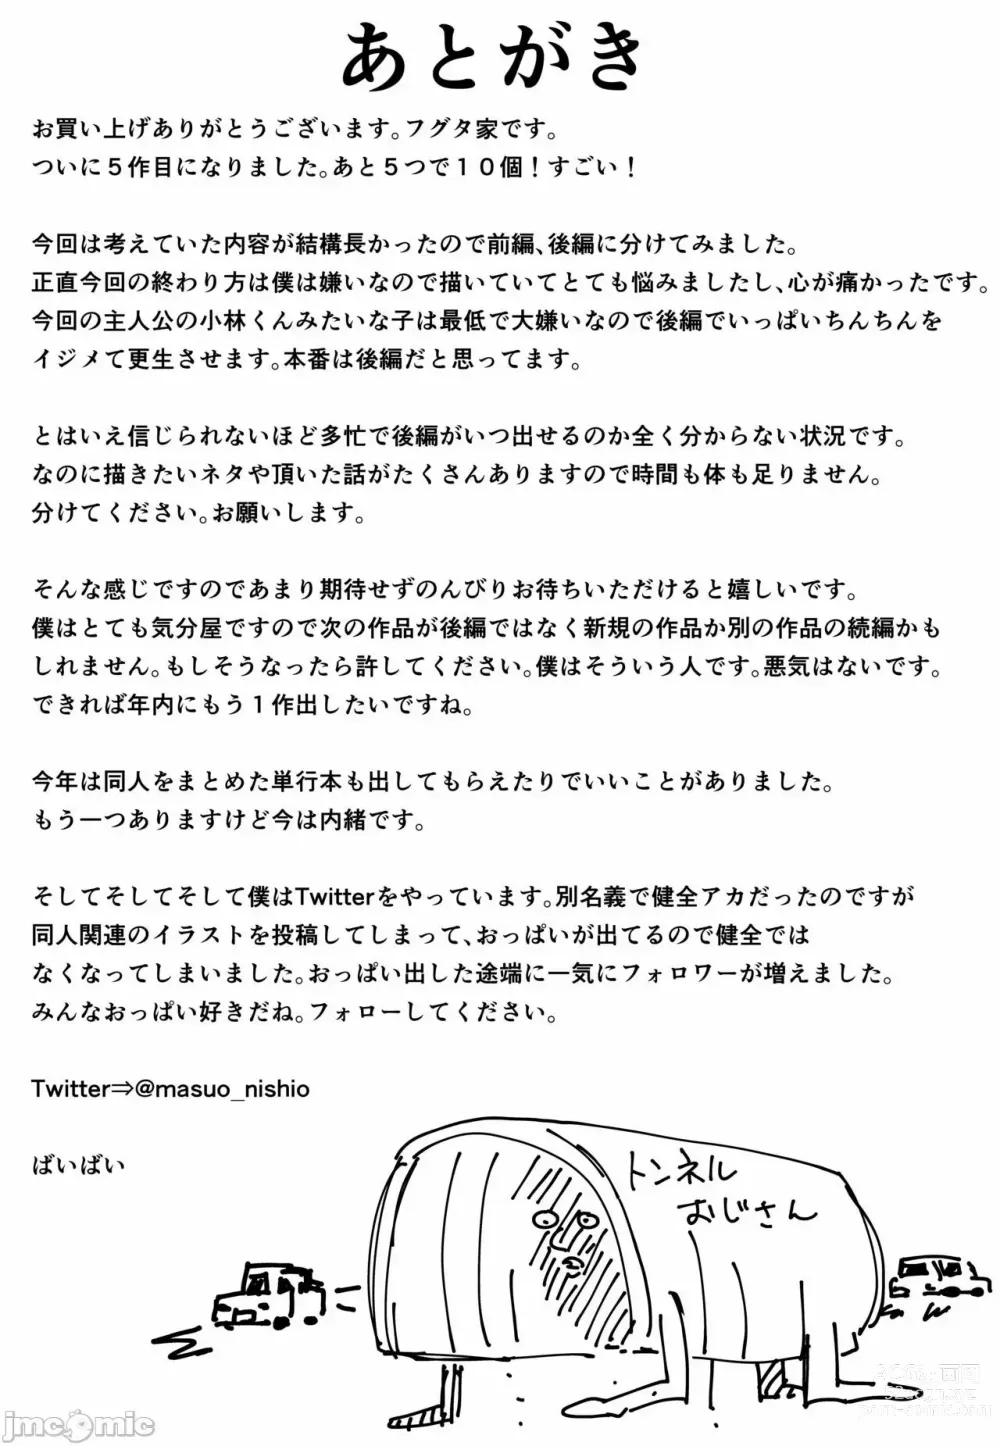 あとがき
お買い上げありがとうございます。フグタ家です。
ついに５作目になりました。あと５つで１０個！すごい！
今回は考えていた内容が結構長かったので前編、後編に分けてみました。
正直今回の終わり方は僕は嫌いなので描いていてとても悩みましたし、心が痛かったです。
今回の主人公の小林くんみたいな子は最低で大嫌いなので後編でいっぱいちんちんを
イジメて更生させます。本番は後編だと思ってます。
とはいえ信じられないほど多忙で後編がいつ出せるのか全く分からない状況です。
なのに描きたいネタや頂いた話がたくさんありますので時間も体も足りません。
分けてください。お願いします。
そんな感じですのであまり期待せずのんびりお待ちいただけると嬉しいです。
僕はとても気分屋ですので次の作品が後編ではなく新規の作品か別の作品の続編かも
しれません。もしそうなったら許してください。僕はそういう人です。悪気はないです。
できれば年内にもう１作出したいですね。
今年は同人をまとめた単行本も出してもらえたりでいいことがありました。
もう一つありますけど今は内緒です。
そしてそしてそして僕はTwitterをやっています。別名義で健全アカだったのですが
同人関連のイラストを投稿してしまって、おっぱいが出てるので健全では
なくなってしまいました。おっぱい出した途端に一気にフォロワーが増えました。
みんなおっぱい好きだね。フォローしてください。
Twitter⇒@masuo_nishio
ばいばい
トンネル
おじさん
jmcomic